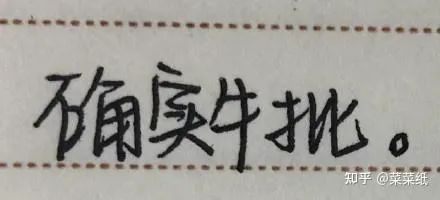 确实牛批。
知乎 @菜菜纸